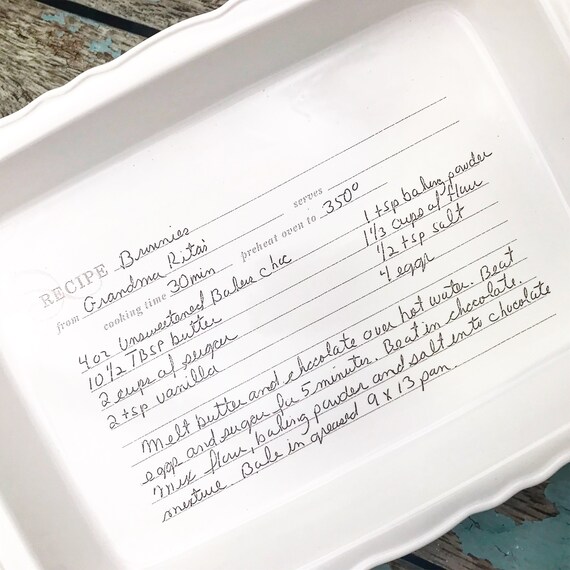 RECIPE Brownies
from Grandma Rita's serves
cooking time 30 min preheat oven to 350°
4 oz Unsweetened Bakers choc 1 tsp baking powder
10 1/2 TBSP butter 1 1/3 cups of flour
2 cups of sugar 1/2 tsp salt
2 tsp vanilla 4 eggs
Melt butter and chocolate over hot water. Beat
eggs and sugar for 5 minutes. Beat in chocolate.
Mix flour, baking powder and salt into chocolate
mixture. Bake in greased 9 x 13 pan.